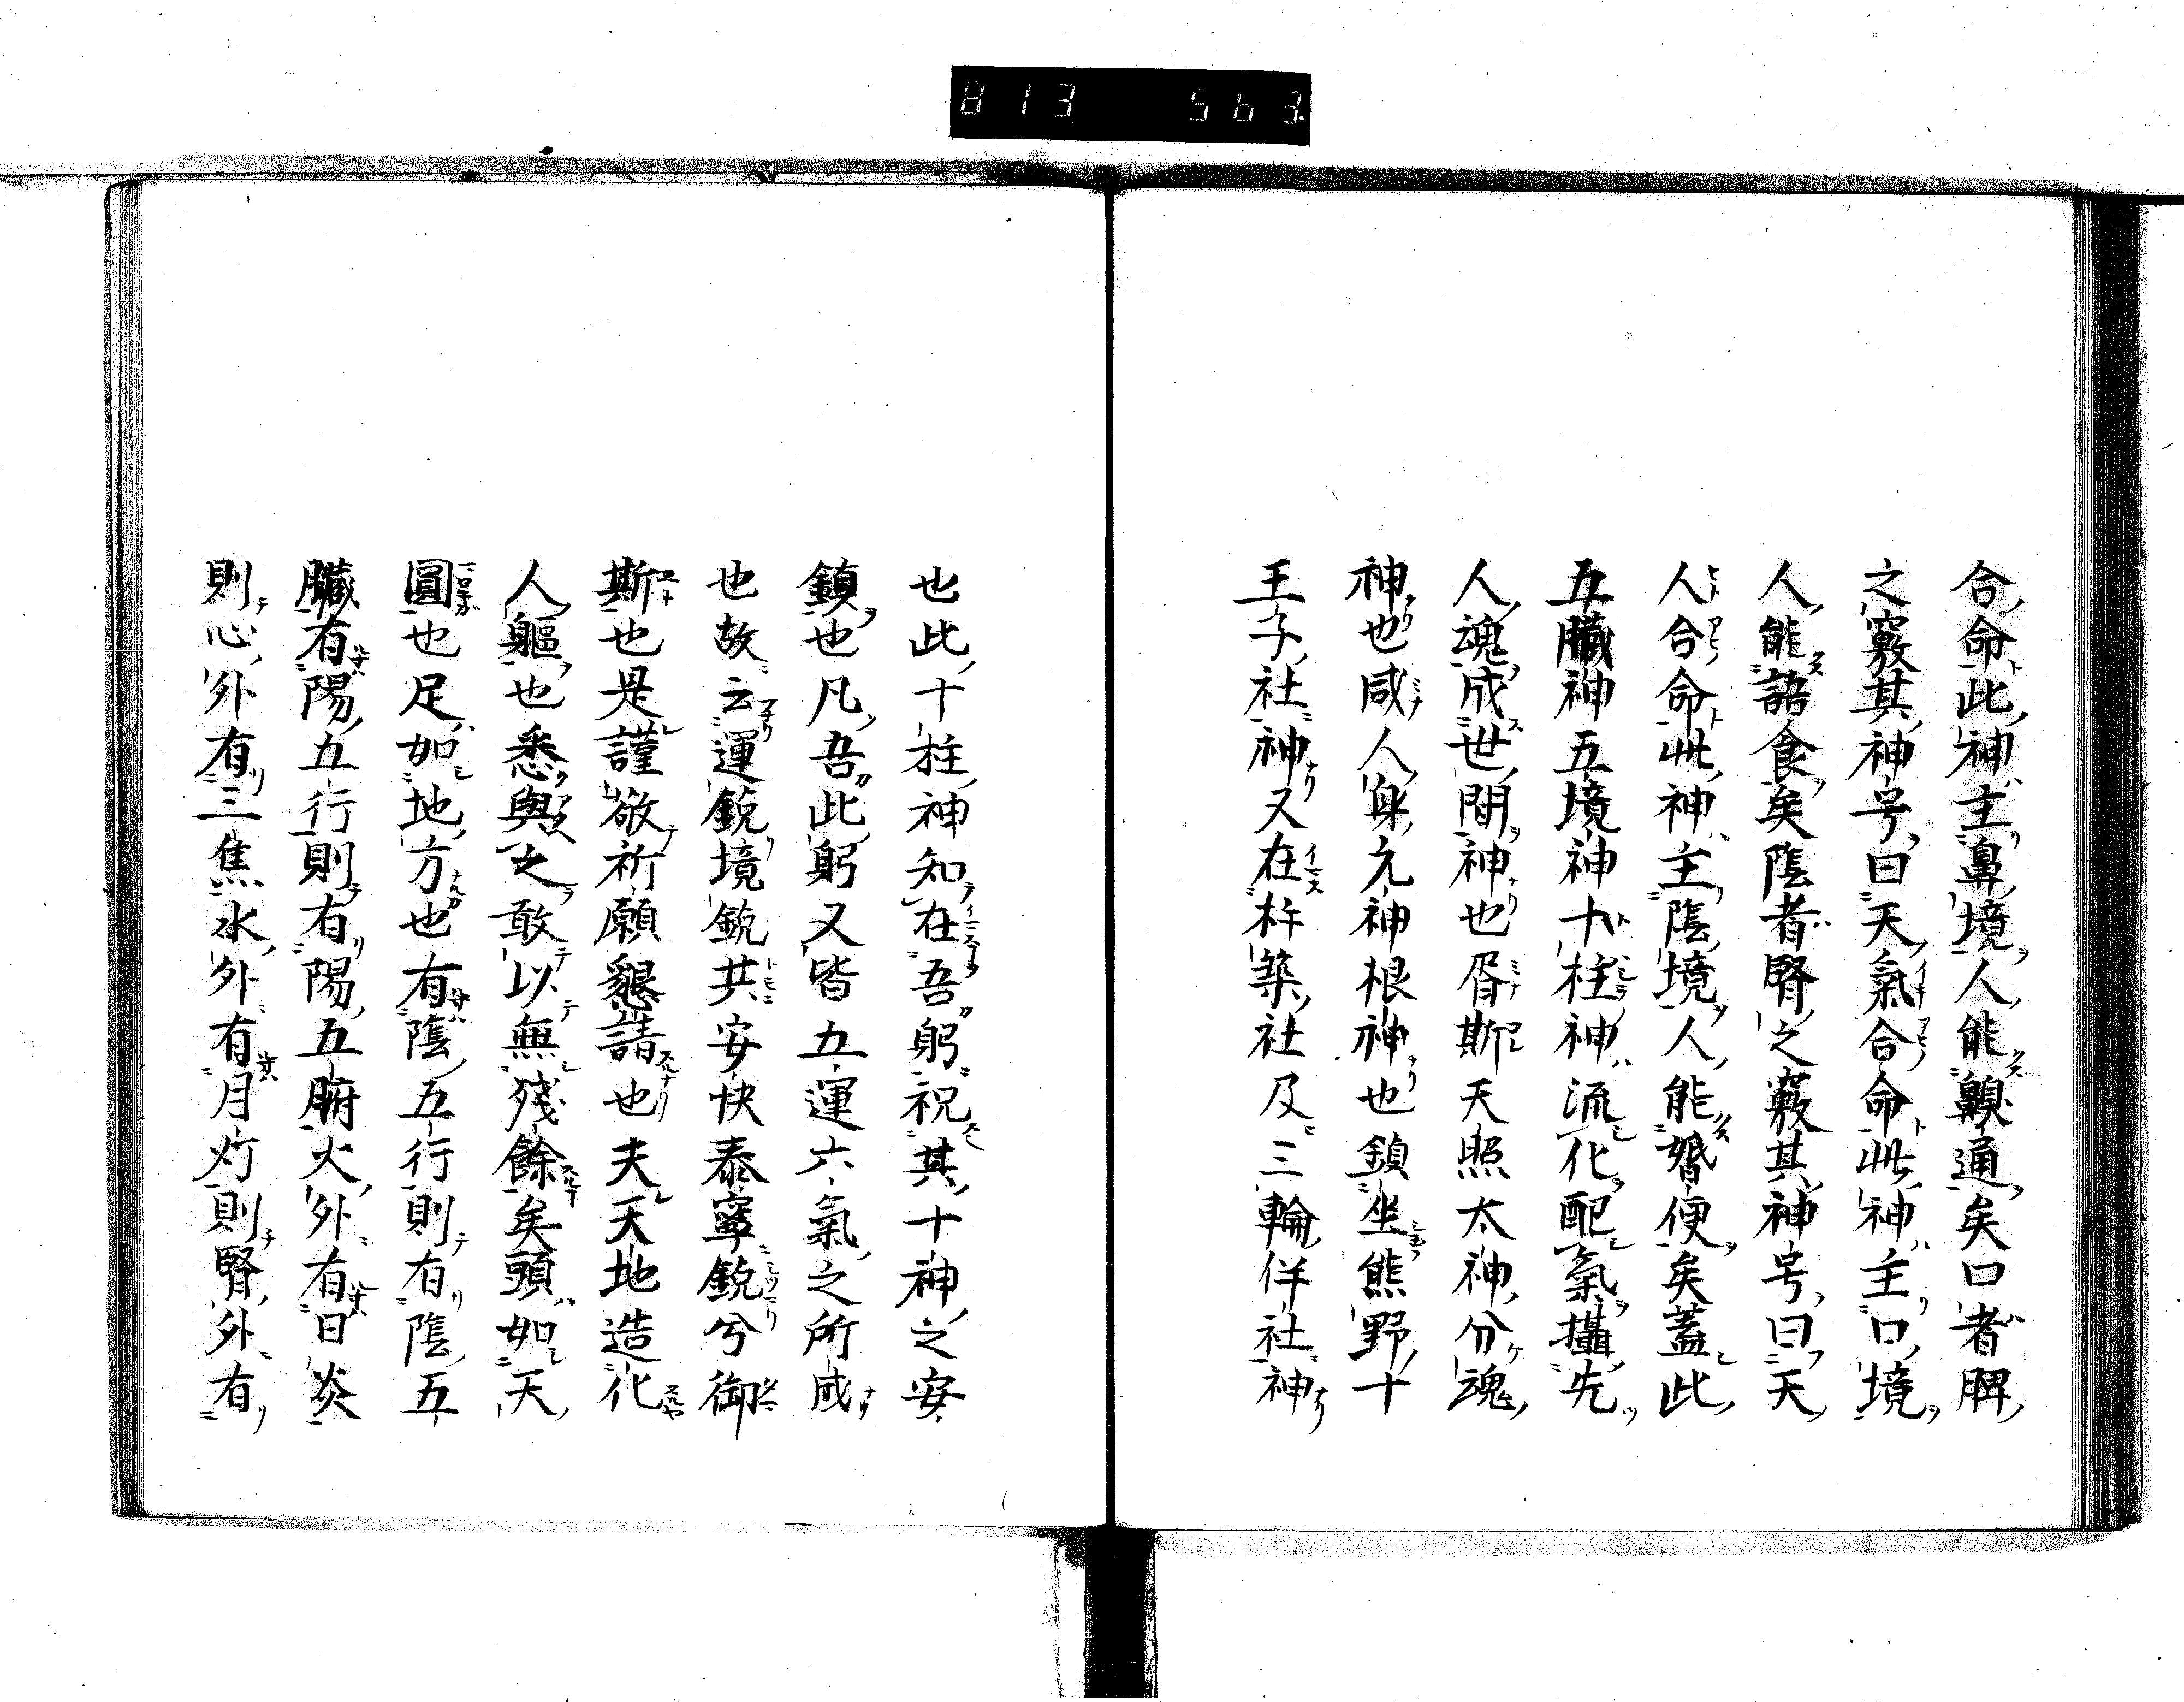 813 563
合命此神主鼻境人能齅通矣口者脾
之竅其神号曰天氣合命此神主口境
人能語食矣陰者腎之竅其神号曰天
人合命此神主陰境人能婚便矣蓋此
五臟神五境神十柱神流化配氣攝先
人魂成世間神也胥斯天照太神分魂
神也咸人身元神根神也鎮坐熊野十
王子社神又在杵築社及三輪伴社神
也此十柱神知在吾躬祝其十神之安
鎮也凡吾此躬又皆五運六氣之所成
也故云運鋭境鋭共安快泰寧鋭兮御
斯也是謹敬祈願懇請也夫天地造化
人軀也悉與之敢以無殘餘矣頭如天
圓也足如地方也有陰五行則有陰五
臟有陽五行則有陽五腑火外有日炎
則心外有三焦水外有月灼則腎外有